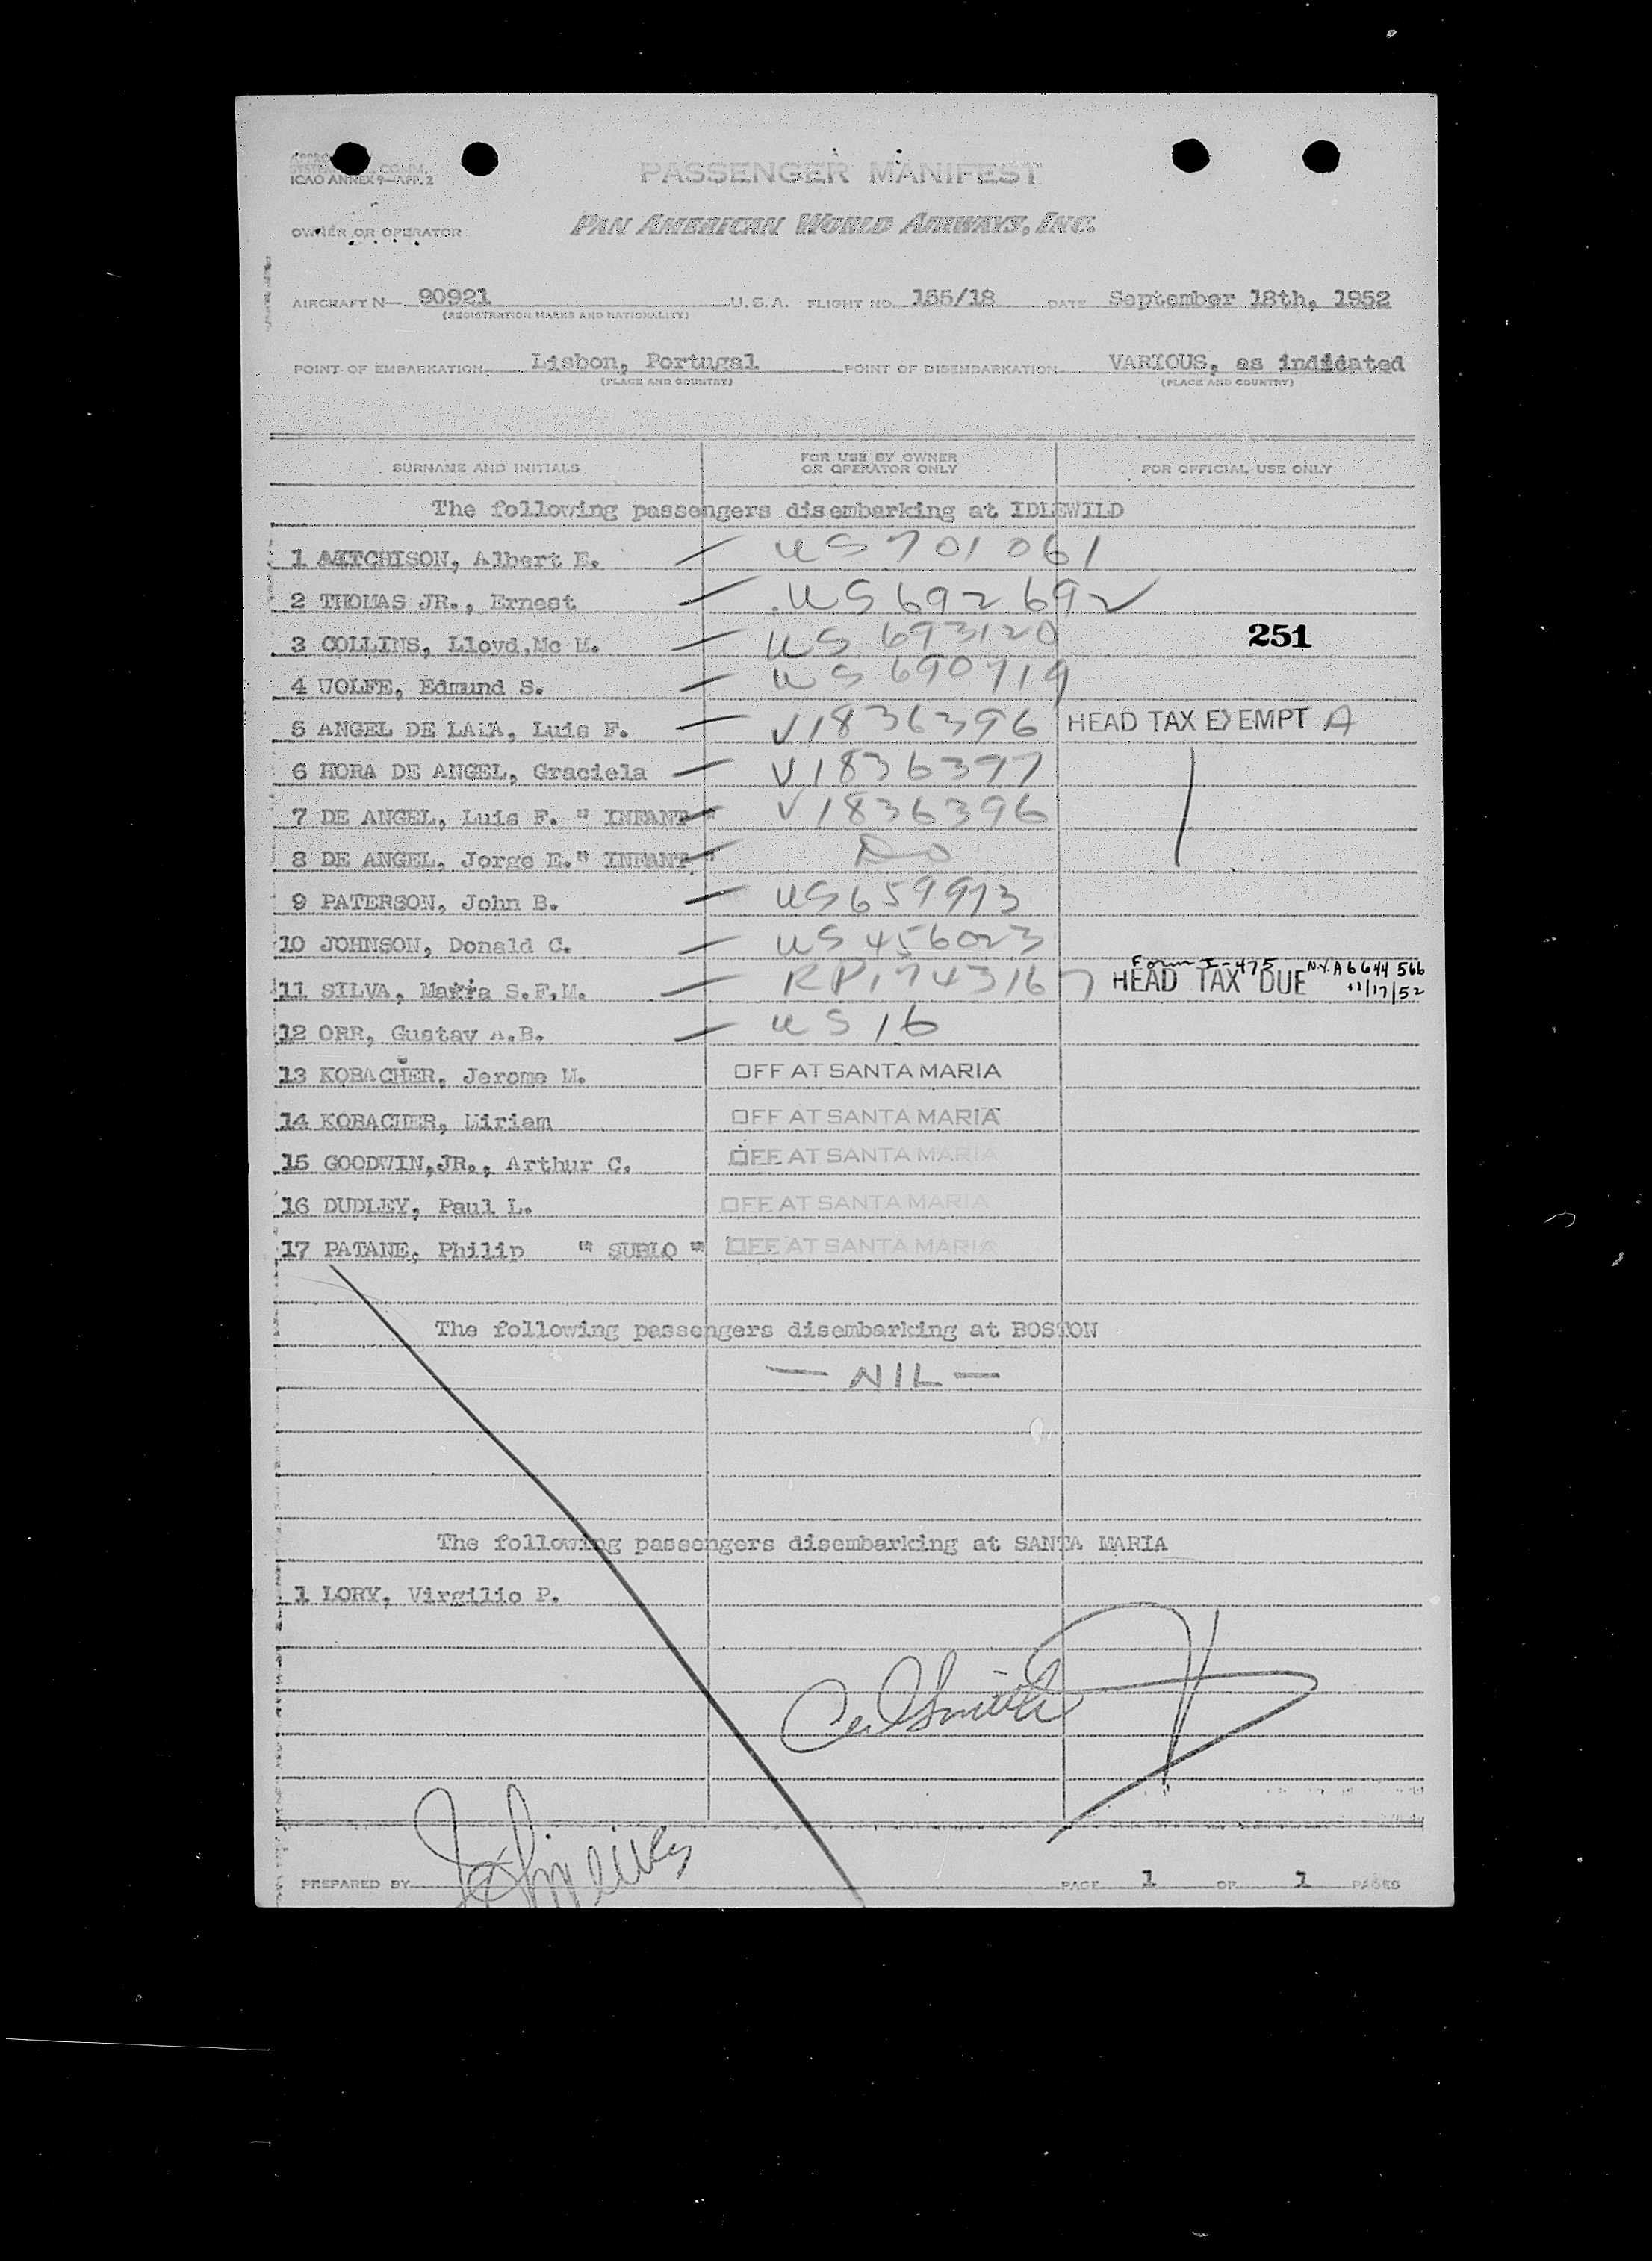 ICAO ANNEX 9—APP. 2
PASSENGER MANIFEST
OWNER OR OPERATOR PAN AMERICAN WORLD AIRWAYS, INC.
AIRCRAFT N— 90921 U.S.A. FLIGHT NO. 155/18 DATE September 18th, 1952
(REGISTRATION MARKS AND NATIONALITY)
POINT OF EMBARKATION Lisbon, Portugal POINT OF DISEMBARKATION VARIOUS, as indicated
(PLACE AND COUNTRY) (PLACE AND COUNTRY)
SURNAME AND INITIALS FOR USE BY OWNER OR OPERATOR ONLY FOR OFFICIAL USE ONLY
The following passengers disembarking at IDLEWILD
1 AITCHISON, Albert E. — US 701061
2 THOMAS JR., Ernest — US 692692
3 COLLINS, Lloyd.Mc M. — US 693120 251
4 WOLFE, Edmund S. — US 690719
5 ANGEL DE LARA, Luis F. — V1836396 HEAD TAX EXEMPT A
6 HORA DE ANGEL, Graciela — V1836397
7 DE ANGEL, Luis F. " INFANT " V1836396
8 DE ANGEL, Jorge E." INFANT " Do
9 PATERSON, John B. — US 659913
10 JOHNSON, Donald C. — US 456023
11 SILVA, Maria S.F.M. — RP1743167 HEAD TAX DUE Form I-475 N.Y. A6644566 11/17/52
12 ORR, Gustav A.B. — US 16
13 KOBACHER, Jerome M. OFF AT SANTA MARIA
14 KOBACHER, Miriam OFF AT SANTA MARIA
15 GOODWIN,JR., Arthur C. OFF AT SANTA MARIA
16 DUDLEY, Paul L. OFF AT SANTA MARIA
17 PATANE, Philip " SUBLO " OFF AT SANTA MARIA
The following passengers disembarking at BOSTON
— NIL —
The following passengers disembarking at SANTA MARIA
1 LORY, Virgilio P.
PREPARED BY PAGE 1 OF 1 PAGES